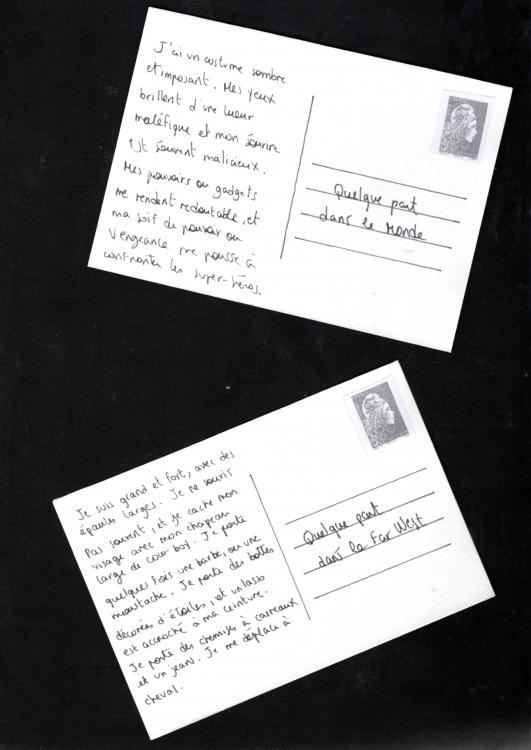 J'ai un costume sombre
et imposant. Mes yeux
brillent d'une lueur
maléfique et mon sourire
est souvent malicieux.
Mes pouvoirs ou gadgets
me rendent redoutable, et
ma soif de pouvoir ou
vengeance me pousse à
confronter les super-héros.
Quelque part
dans le Monde
Je suis grand et fort, avec des
épaules larges. Je ne souris
pas souvent, et je cache mon
visage avec mon chapeau
large de cow-boy. Je porte
quelques fois une barbe, ou une
moustache. Je porte des bottes
décorées d'étoiles, et un lasso
est accroché à ma ceinture.
Je porte des chemises à carreaux
et un jean. Je me déplace à
cheval.
Quelque part
dans le Far West